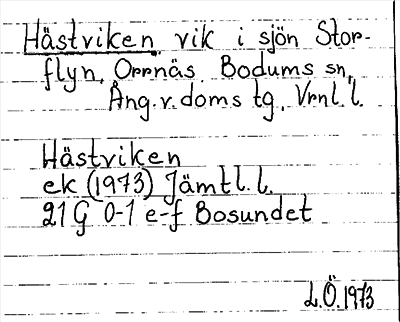 Hästviken vik i sjön Stor-
flyn, Orrnäs, Bodums sn,
Ång.v.doms tg, Vrnl.l.
Hästviken
ek (1973) Jämtl.l.
21 G 0-1 e-f Bosundet
L.Ö.1973